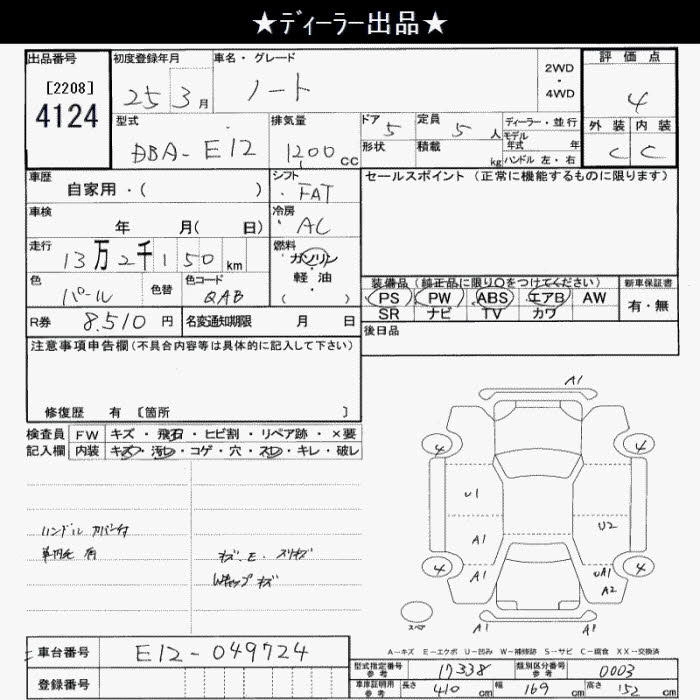 ★ディーラー出品★
出品番号 初度登録年月 車名・グレード 2WD ・ 4WD 評価点
[2208] 25 3月 ノート 4
4124
型式 排気量 ドア 5 定員 5人 ディーラー・並行 外装 内装
DBA-E12 1200cc 形状 積載 kg モデル年式 年 C C
ハンドル 左・右
車歴 シフト セールスポイント (正常に機能するものに限ります)
自家用・( ) FAT
車検 冷房
年 月( 日) AC
走行 燃料
13万2千150km ガソリン
色 色替 色コード 軽油
パール QAB ( ・ )
装備品(純正品に限り○をつけてください) 新車保証書
PS PW ABS エアB AW 有・無
SR ナビ TV カワ
R券 8,510円 名変通知期限 月 日
後日品
注意事項申告欄(不具合内容等は具体的に記入して下さい)
修復歴 有 [箇所 ]
検査員 FW キズ・飛石・ヒビ割・リペア跡・×要
記入欄 内装 キズ・汚レ・コゲ・穴・スレ・キレ・破レ
A1
4 4
U1
ハンドル カバー付
U2
A1
キズ.E.スリキズ
4 A1 UA1 4
Wキャップ キズ
A2
スペア A1 A1
A-キズ E-エクボ U-凹み W-補修跡 S-サビ C-腐食 XX-交換済
車台番号 E12-049724
型式指定番号参考 17338 類別区分番号参考 0003
登録番号
車庫証明用参考 長さ 410cm 幅 169cm 高さ 152cm